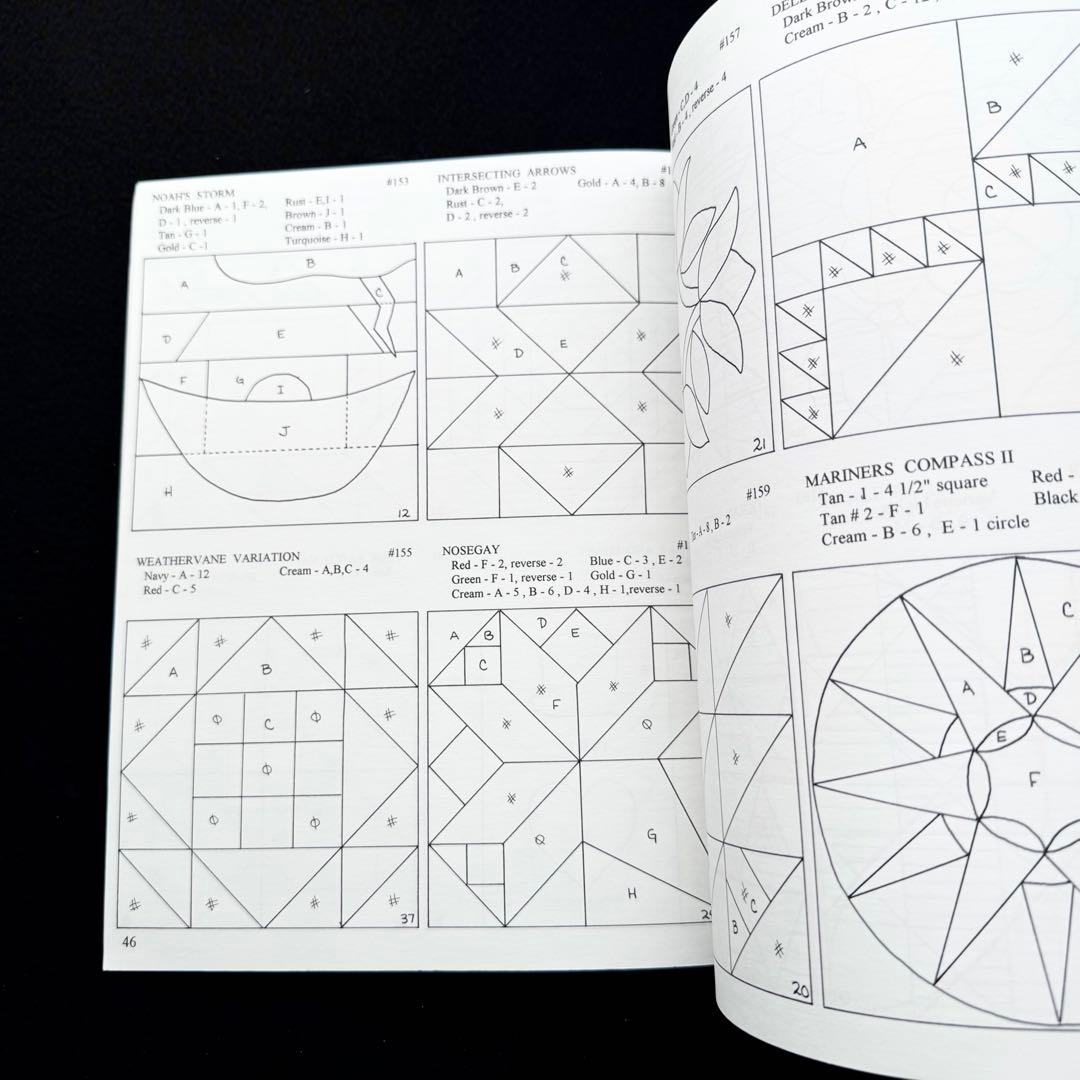 NOAH'S STORM #153
Dark Blue - A - 1, F - 2,
D - 1, reverse - 1
Tan - G - 1
Gold - C - 1
Rust - E,I - 1
Brown - J - 1
Cream - B - 1
Turquoise - H - 1
A
B
C
D
E
F
G
I
J
H
12
INTERSECTING ARROWS
Dark Brown - E - 2
Rust - C - 2,
D - 2, reverse - 2
Gold - A - 4, B - 8
A
B
C
#
# D
E
#
#
#
#
WEATHERVANE VARIATION #155
Navy - A - 12
Red - C - 5
Cream - A,B,C - 4
# # #
A
B
# Φ C Φ #
Φ
# Φ Φ #
# # # #
37
NOSEGAY
Red - F - 2, reverse - 2
Green - F - 1, reverse - 1
Cream - A - 5 , B - 6 , D - 4 , H - 1,reverse - 1
Blue - C - 3 , E - 2
Gold - G - 1
A B D E
C
# F #
# Q
#
Q G
H
46
#157
C,D - 4
B - 4, reverse - 4
21
Dark Brow
Cream - B - 2 , C -
A
#
B
C # #
# # #
#
#
#
#
#159
A - 8, B - 2
#
#
# C
B
#
20
MARINERS COMPASS II
Tan - 1 - 4 1/2" square
Tan # 2 - F - 1
Cream - B - 6 , E - 1 circle
Red -
Black
C
B
A
D
E
F